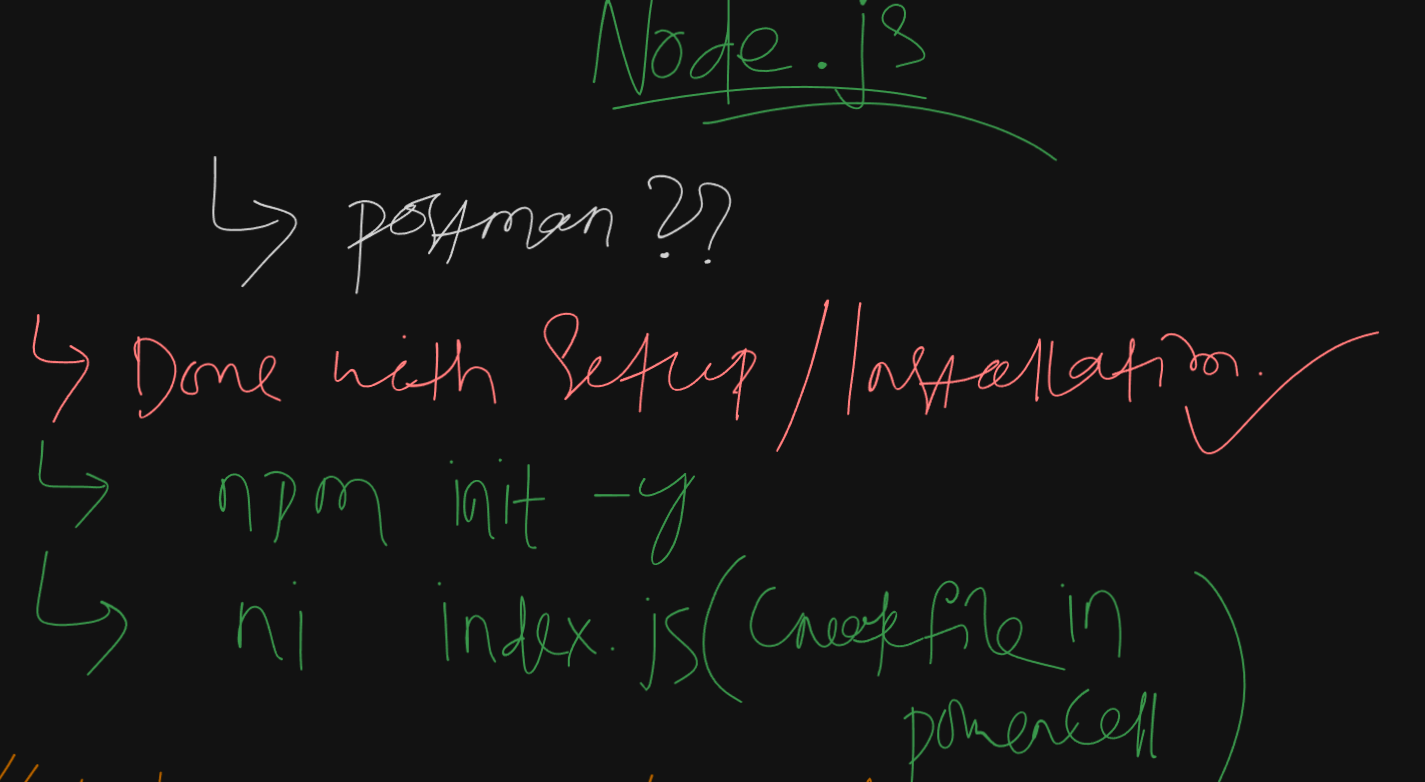 Node.js
↳ postman ??
↳ Done with Setup/Installation. ✓
↳ npm init -y
↳ ni index.js (Create file in
powercell)